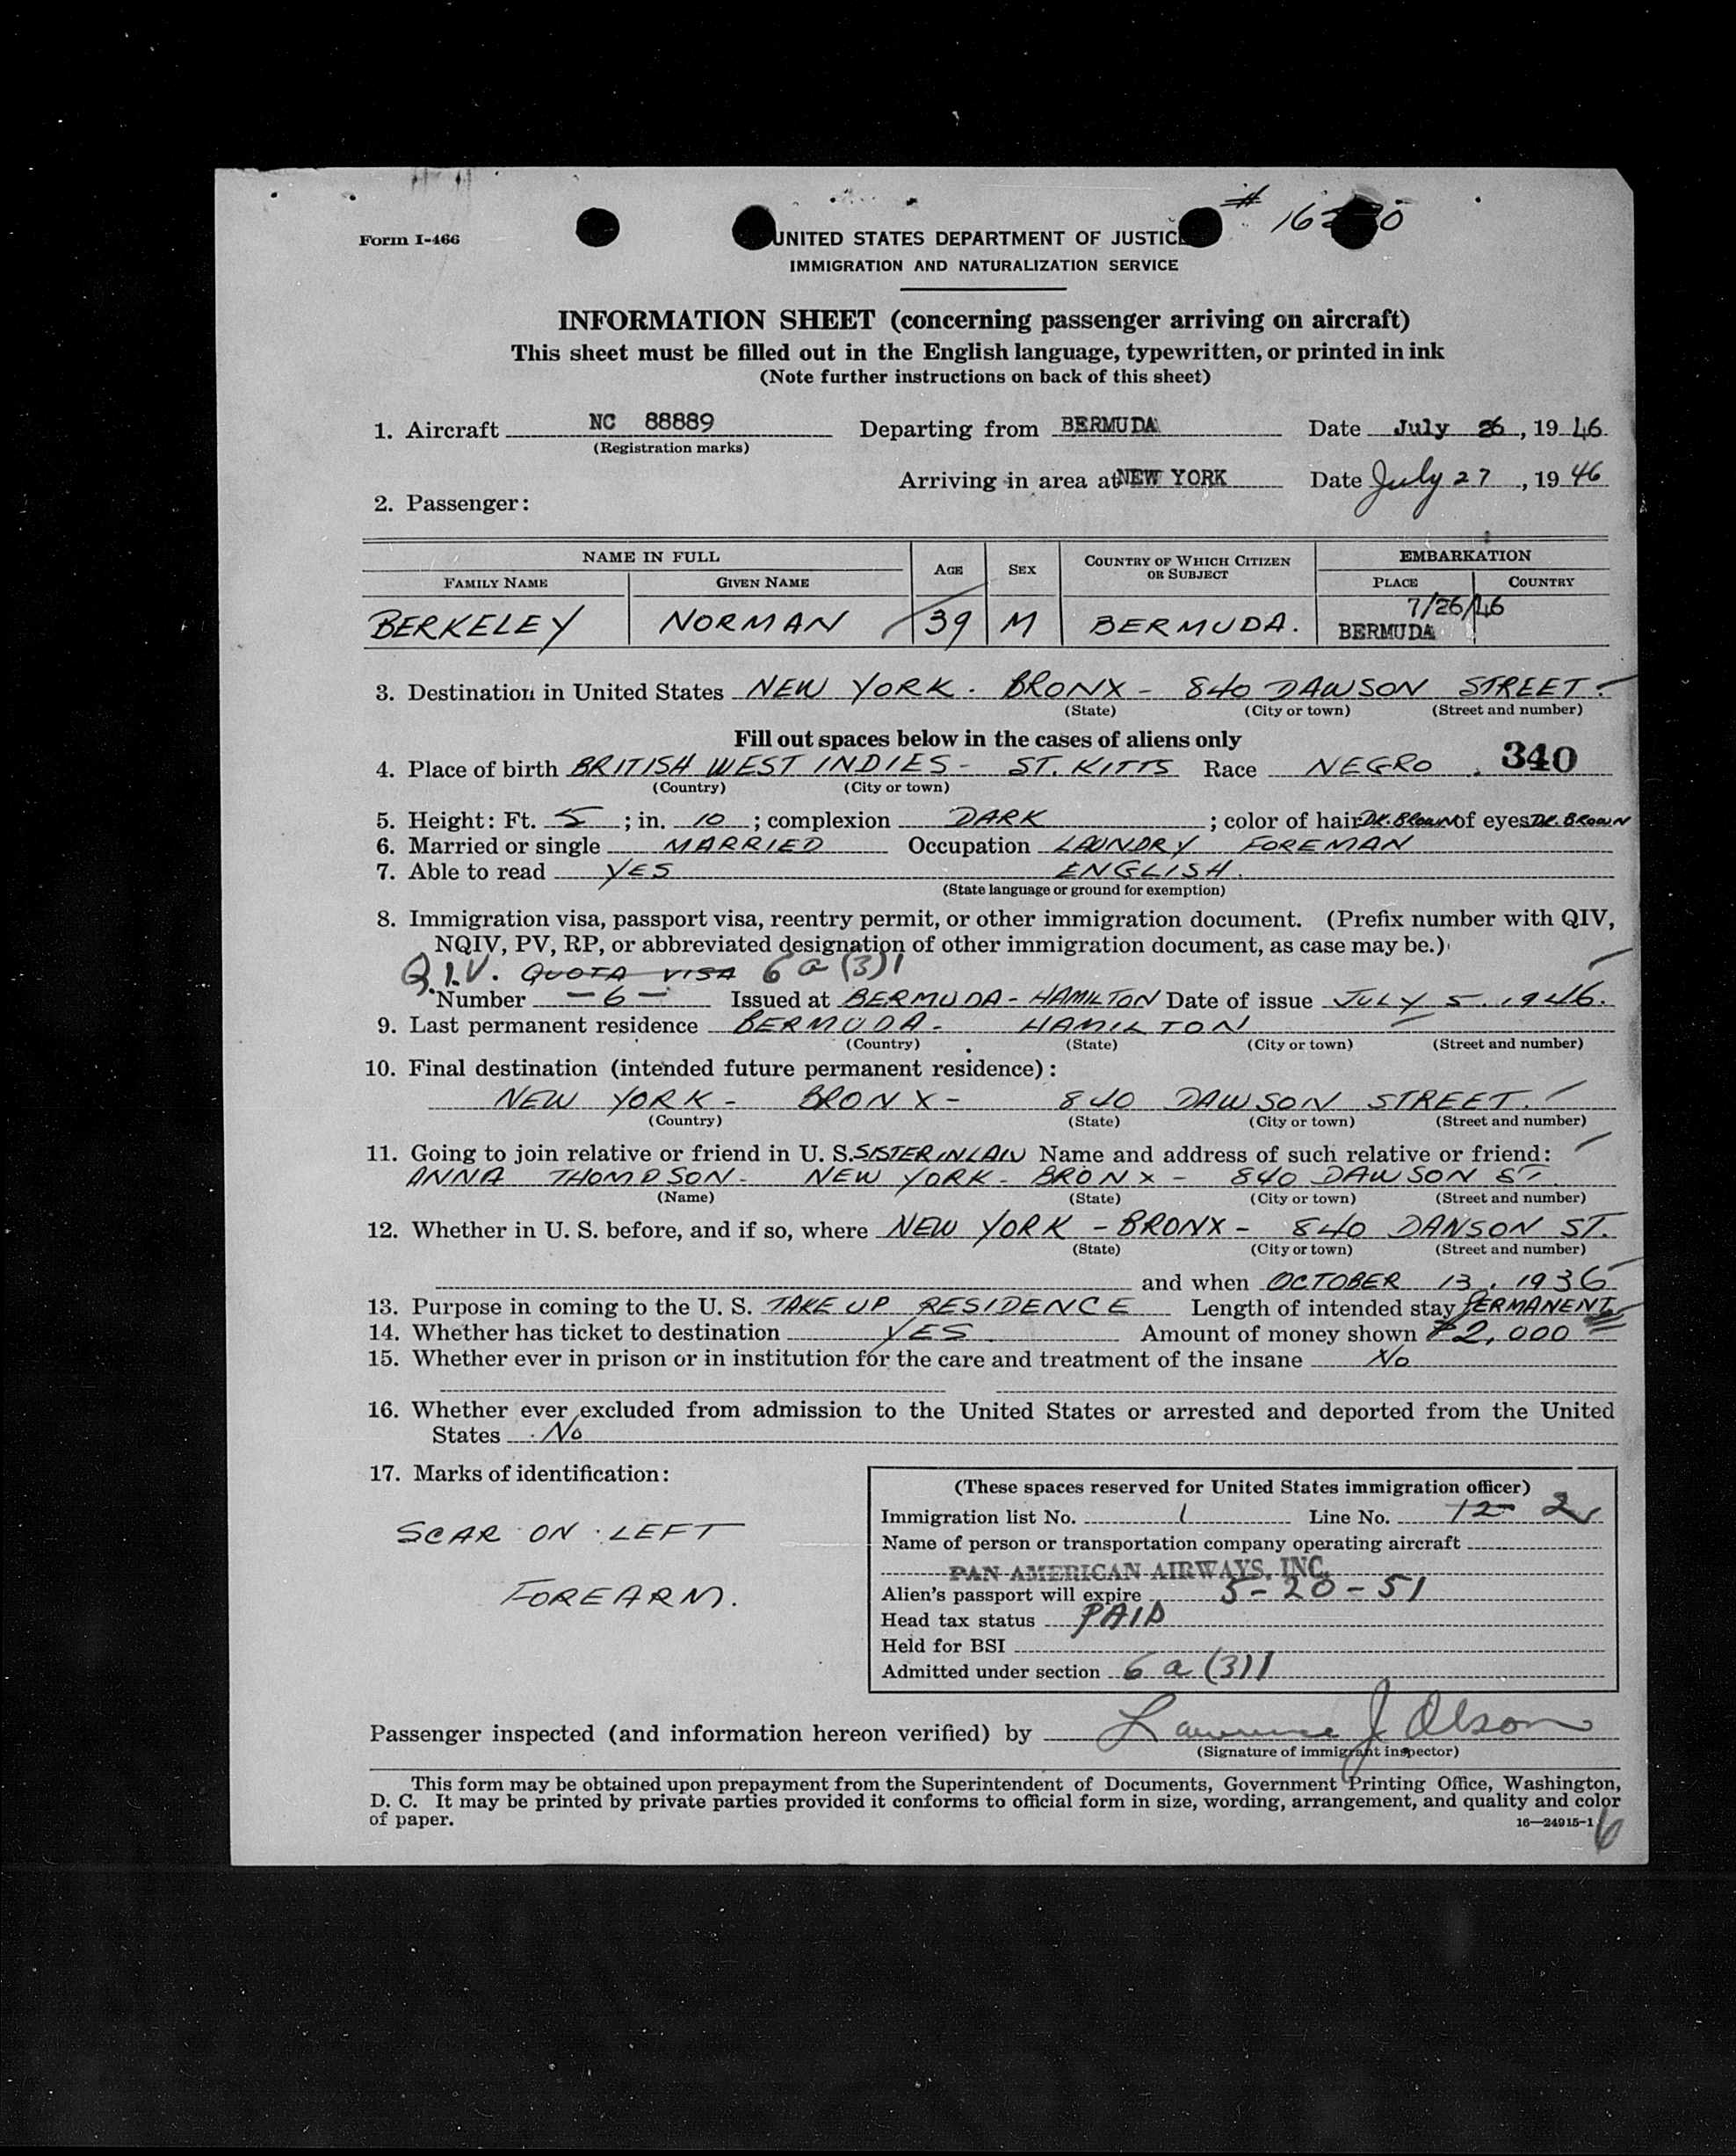 Form I-466
# 16
UNITED STATES DEPARTMENT OF JUSTICE
IMMIGRATION AND NATURALIZATION SERVICE
INFORMATION SHEET (concerning passenger arriving on aircraft)
This sheet must be filled out in the English language, typewritten, or printed in ink
(Note further instructions on back of this sheet)
1. Aircraft NC 88889 Departing from BERMUDA Date July 26, 19 46
(Registration marks)
Arriving in area at NEW YORK Date July 27, 19 46
2. Passenger:
NAME IN FULL AGE SEX COUNTRY OF WHICH CITIZEN OR SUBJECT EMBARKATION
FAMILY NAME GIVEN NAME PLACE COUNTRY
7/26/46
BERKELEY NORMAN 39 M BERMUDA. BERMUDA
3. Destination in United States NEW YORK. BRONX - 840 DAWSON STREET.
(State) (City or town) (Street and number)
Fill out spaces below in the cases of aliens only
4. Place of birth BRITISH WEST INDIES - ST. KITTS Race NEGRO. 340
(Country) (City or town)
5. Height: Ft. 5; in. 10; complexion DARK; color of hair DK. BROWN of eyes DK. BROWN
6. Married or single MARRIED Occupation LAUNDRY FOREMAN
7. Able to read YES ENGLISH.
(State language or ground for exemption)
8. Immigration visa, passport visa, reentry permit, or other immigration document. (Prefix number with QIV,
NQIV, PV, RP, or abbreviated designation of other immigration document, as case may be.)
Q.I.V. QUOTA VISA 6 a (3)1
Number -6- Issued at BERMUDA - HAMILTON Date of issue JULY 5. 1946.
9. Last permanent residence BERMUDA - HAMILTON
(Country) (State) (City or town) (Street and number)
10. Final destination (intended future permanent residence):
NEW YORK - BRONX - 840 DAWSON STREET.
(Country) (State) (City or town) (Street and number)
11. Going to join relative or friend in U. S. SISTER IN LAW Name and address of such relative or friend:
ANNA THOMPSON - NEW YORK - BRONX - 840 DAWSON ST.
(Name) (State) (City or town) (Street and number)
12. Whether in U. S. before, and if so, where NEW YORK - BRONX - 840 DANSON ST.
(State) (City or town) (Street and number)
and when OCTOBER 13, 1936
13. Purpose in coming to the U. S. TAKE UP RESIDENCE Length of intended stay PERMANENT
14. Whether has ticket to destination YES. Amount of money shown $2,000
15. Whether ever in prison or in institution for the care and treatment of the insane No
16. Whether ever excluded from admission to the United States or arrested and deported from the United
States No
17. Marks of identification:
SCAR ON LEFT
FOREARM.
(These spaces reserved for United States immigration officer)
Immigration list No. 1 Line No. 12 2
Name of person or transportation company operating aircraft
PAN AMERICAN AIRWAYS, INC.
Alien's passport will expire 5-20-51
Head tax status PAID
Held for BSI
Admitted under section 6 a (3)1
Passenger inspected (and information hereon verified) by Lawrence J Olson
(Signature of immigrant inspector)
This form may be obtained upon prepayment from the Superintendent of Documents, Government Printing Office, Washington,
D. C. It may be printed by private parties provided it conforms to official form in size, wording, arrangement, and quality and color
of paper.
16—24915-1
6